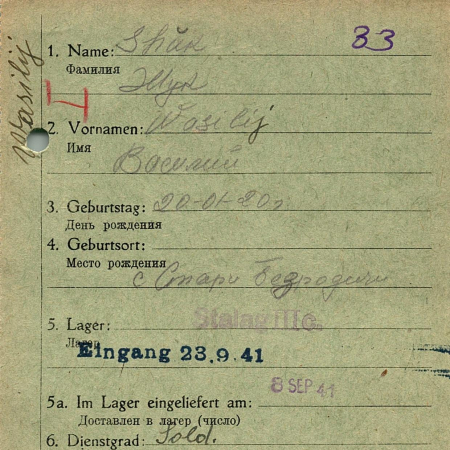 33
1. Name: Shuk
Фамилия
Жук
Wasilij
2. Vornamen: Wasilij
Имя
Василий
3. Geburtstag: 20-01-20г
День рождения
4. Geburtsort:
Место рождения
с Стари Бедродичи
5. Lager: Stalag IIC.
Лагер
Eingang 23.9.41
8 SEP 41
5a. Im Lager eingeliefert am:
Доставлен в лагер (число)
6. Dienstgrad: Sold.